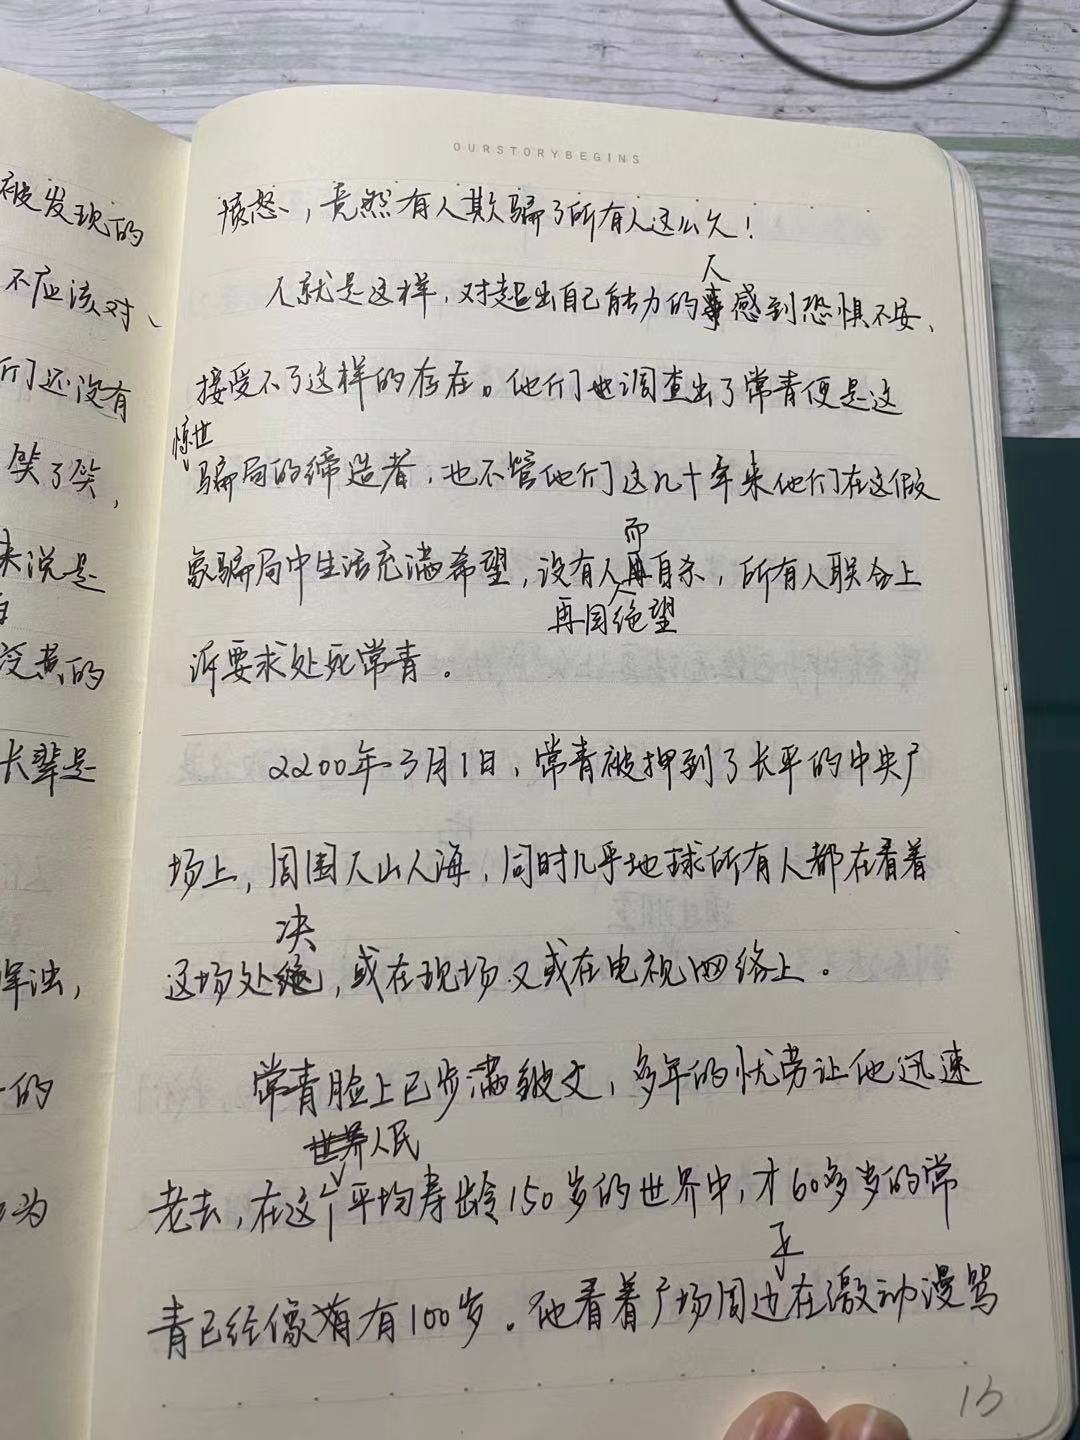 被发现的
不应该对、
们还没有
笑了笑,
来说是
没黄的
长辈是
浑浊,
的
为
OURSTORYBEGINS
愤怒、,竟然有人欺骗了所有人这么久!
人
人就是这样,对超出自己能力的感到恐惧不安、
接受不了这样的存在。他们也调查出了常青便是这
惊世
骗局的缔造者,也不管他们这几十年来他们在这做
而
象骗局中生活充满希望,没有人再自杀,所有人联合上
再因绝望
诉要求处死常青。
2200年3月1日,常青被押到了长平的中央广
场上,周围人山人海,同时几乎地球所有人都在看着
决
这场处,或在现场又或在电视网络上。
常青脸上已步满皱文,多年的忧劳让他迅速
世界人民
老去,在这个平均寿龄150岁的世界中,才60多岁的常
正
青已经像有100岁。他看着广场周边在激动漫骂
13